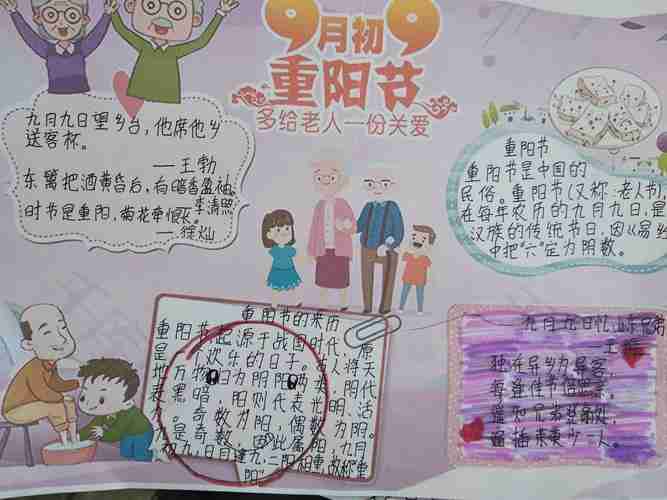 9月初9
重阳节
多给老人一份关爱
九月九日望乡台，他席他乡
送客杯。
——王勃
东篱把酒黄昏后，有暗香盈袖
——李清照
时节是重阳，菊花牵恨长。
——徐灿
重阳节
重阳节是中国的
民俗。重阳节（又称：老人节）
在每年农历的九月九日，是
汉族的传统节日，因《易经》
中把“六”定为阴数。
重阳节的来历
重阳节起源于战国时代，原
是一个欢乐的日子。古人将天
地万物归为阴阳两
黑暗，阳则代表光明、活
力。奇数为阳，偶数为阴。
是奇数，因此属阳，九月
初九，日月逢九，二阳相重，故称“重
阳”
九月九日忆山东兄弟
——王维
独在异乡为异客，
每逢佳节倍思亲。
遥知兄弟登高处，
遍插茱萸少一人。